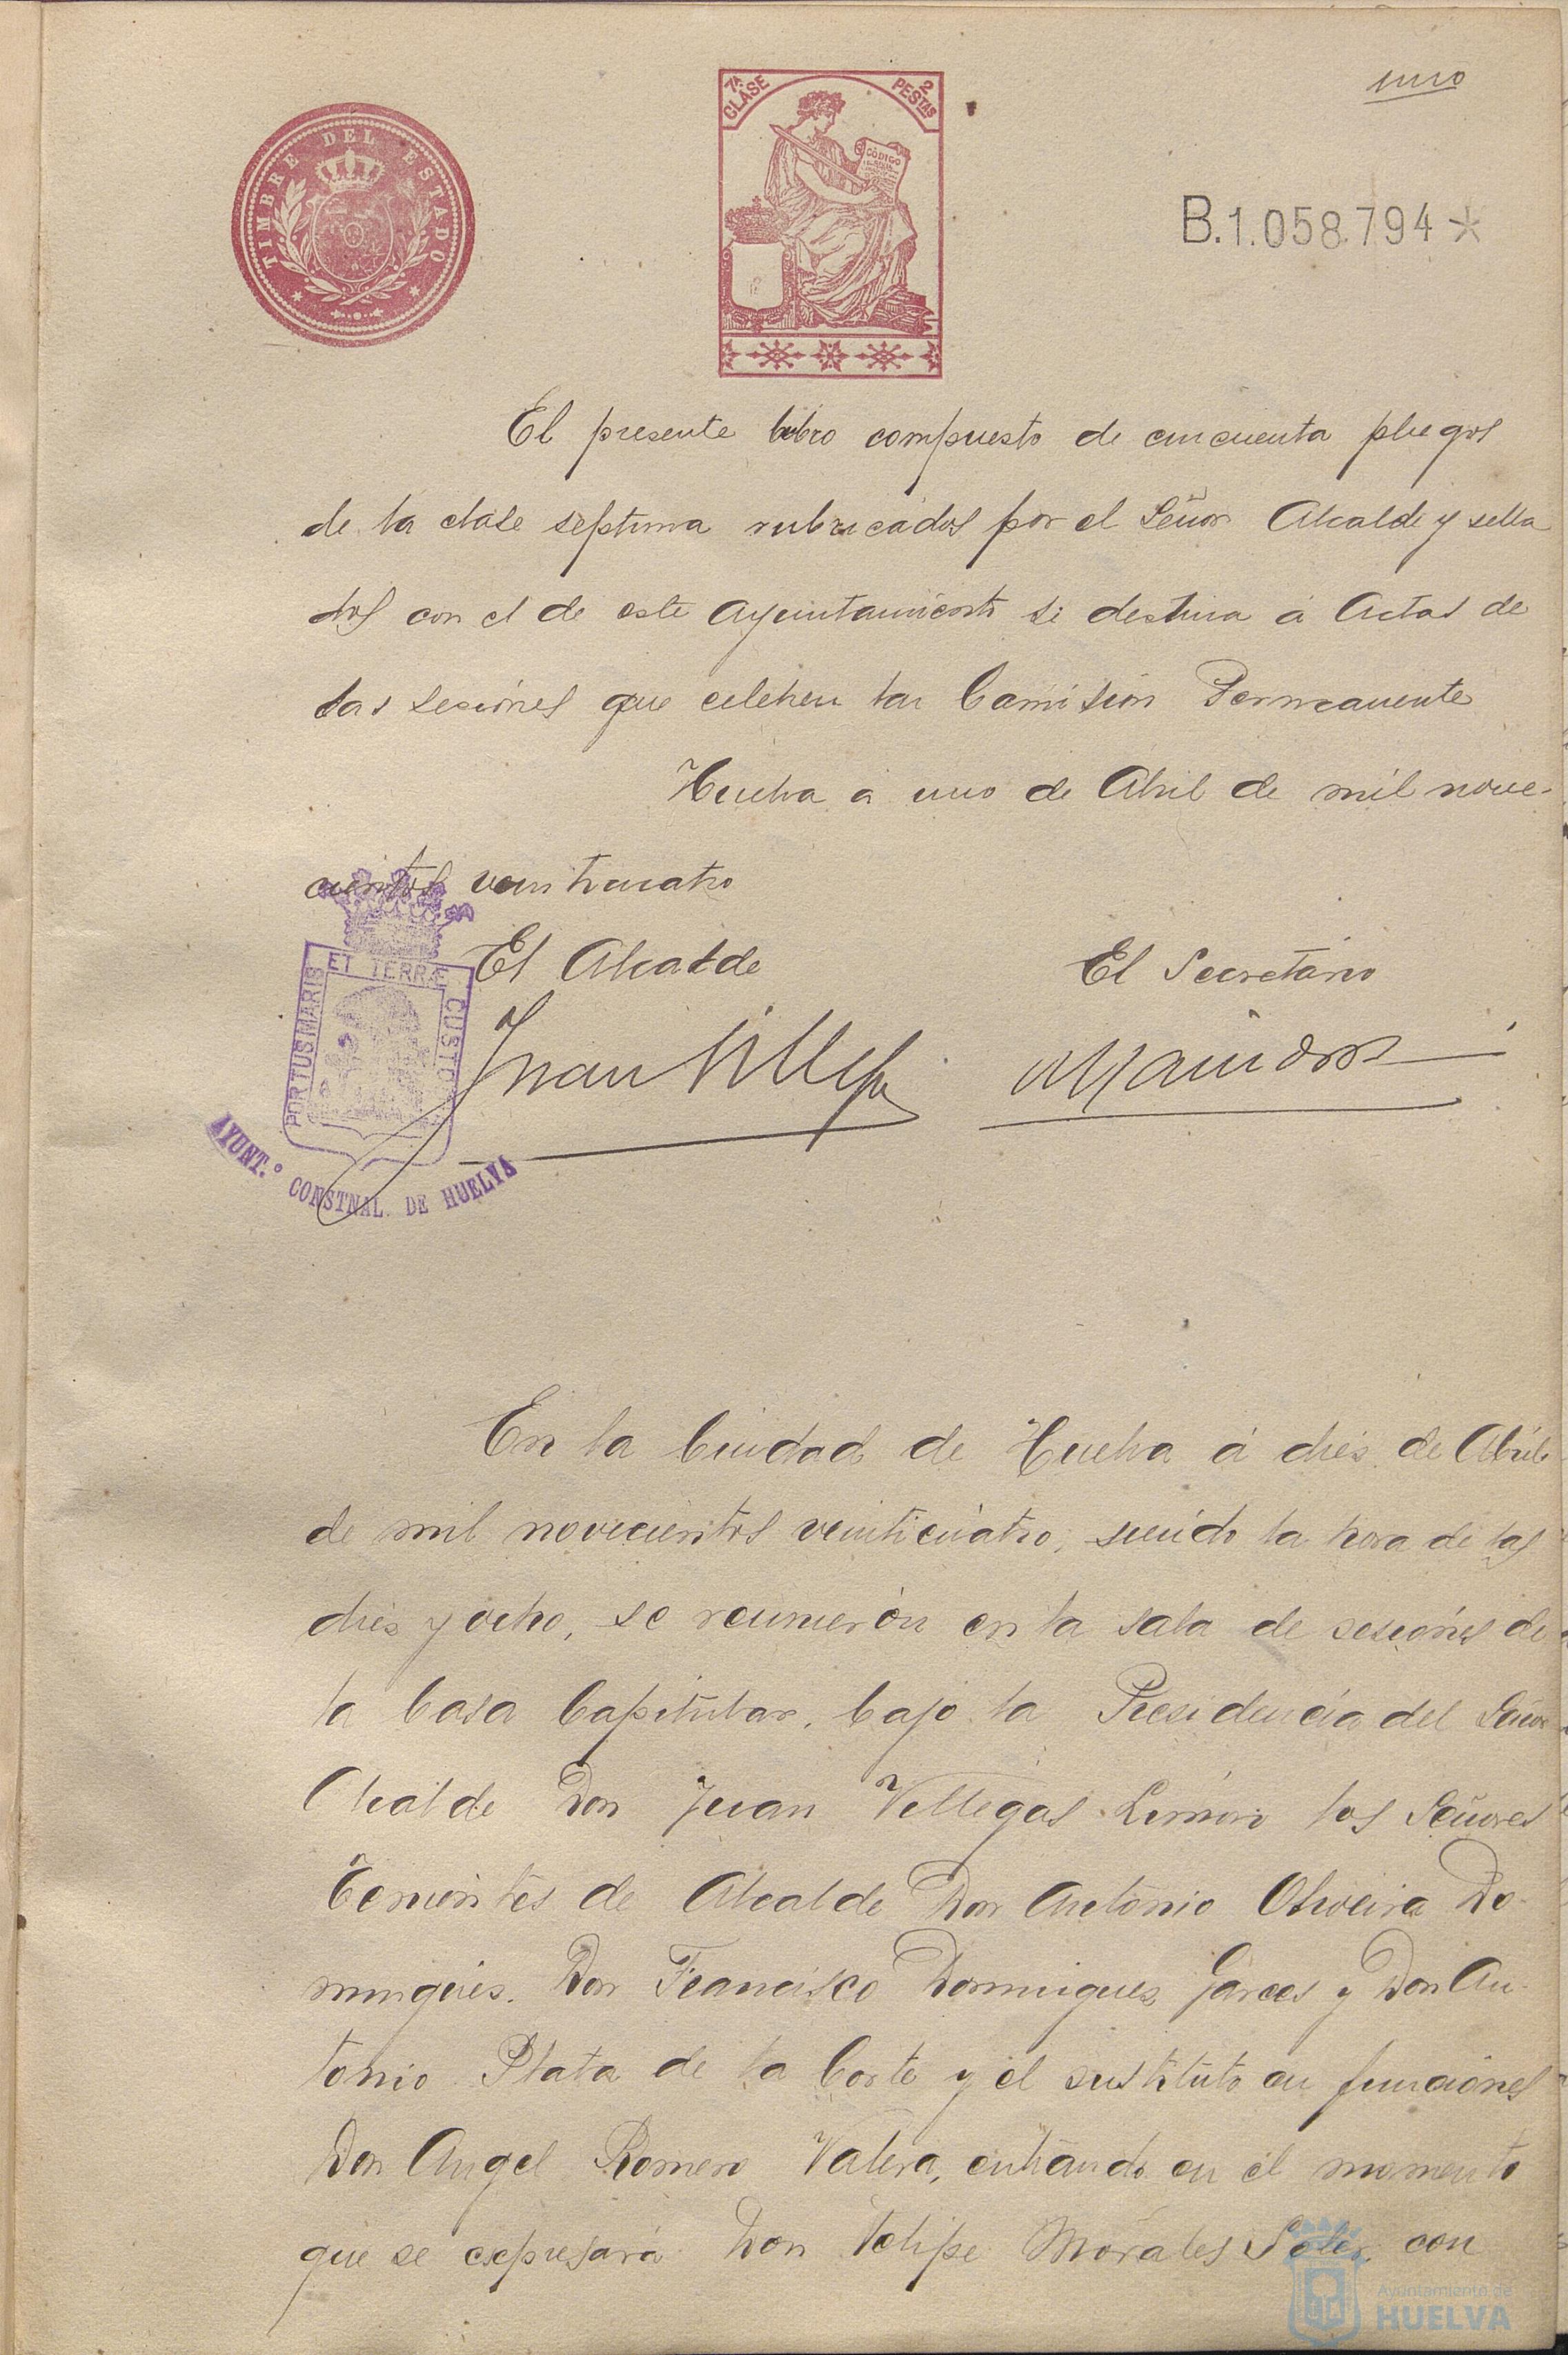 uno
TIMBRE DEL ESTADO
7ª CLASE
2 PESTAS
CÓDIGO
B.1.058.794*
El presente libro compuesto de cincuenta pliegos
de la clase septima rubricados por el Señor Alcalde y sella
dos con el de este Ayuntamiento se destina á Actas de
las sesiones que celebren la Comisión Permanente
Huelva a uno de Abril de mil nove-
cientos veinticuatro
El Alcalde
El Secretario
Juan Villegas
ET TERRÆ
PORTUS MARIS
CUSTO
AYUNT.º CONSTNAL. DE HUELVA
En la Ciudad de Huelva á diés de Abril
de mil novecientos veinticuatro, siendo la hora de las
diés y ocho, se reunierón en la sala de sesiónes de
la Casa Capitular, bajo la Presidencia del Señor
Alcalde Don Juan Villegas Limón los Señores
Tenientes de Alcalde Don Antonio Oliveira Do-
mingues, Don Francisco Domingues Garces y Don An-
tonio Plata de la Corte y el sustituto en funciones
Don Angel Romero Valera, entrando en el momento
que se espresará Don Felipe Morales Soler, con
Ayuntamiento de
HUELVA